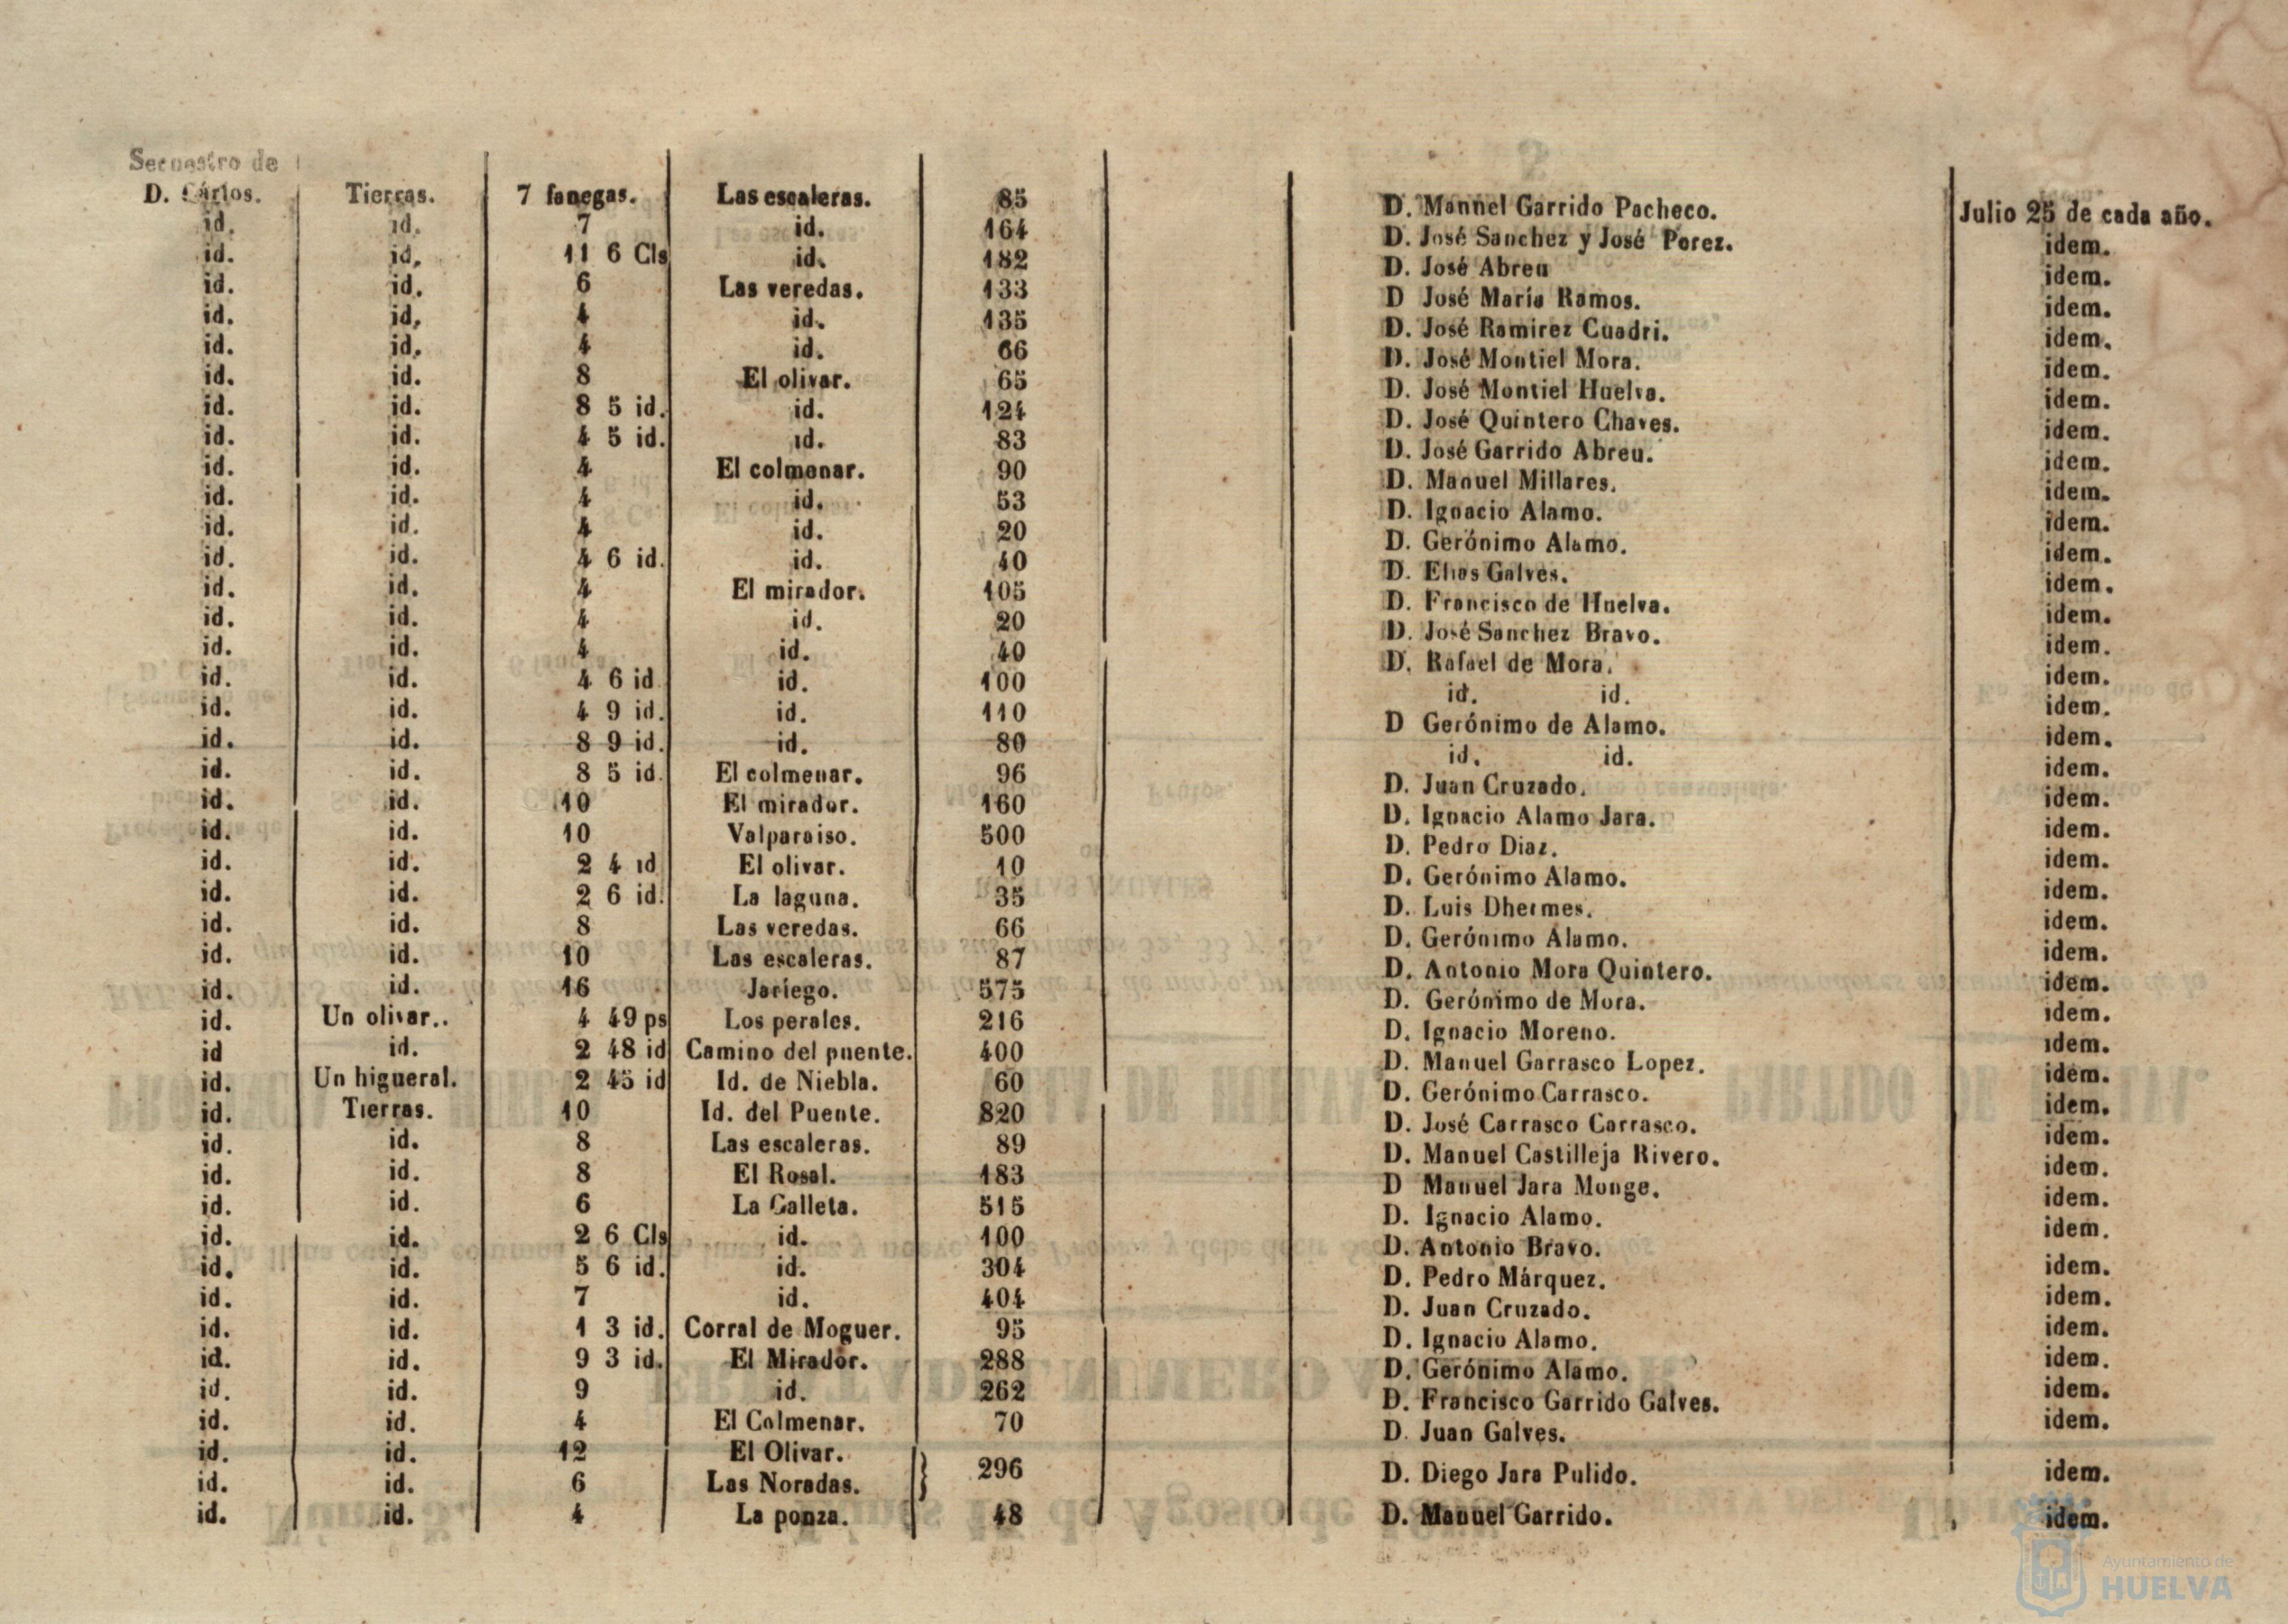 Secuestro de
D. Cárlos. Tierras. 7 fanegas. Las escaleras. 85 D. Manuel Garrido Pacheco. Julio 25 de cada año.
id. id. 7 id. 164 D. José Sanchez y José Perez. idem.
id. id. 11 6 Cls id. 182 D. José Abreu idem.
id. id. 6 Las veredas. 133 D José María Ramos. idem.
id. id. 4 id. 135 D. José Ramirez Cuadri. idem.
id. id. 4 id. 66 D. José Montiel Mora. idem.
id. id. 8 El olivar. 65 D. José Montiel Huelva. idem.
id. id. 8 5 id. id. 124 D. José Quintero Chaves. idem.
id. id. 4 5 id. id. 83 D. José Garrido Abreu. idem.
id. id. 4 El colmenar. 90 D. Manuel Millares. idem.
id. id. 4 id. 53 D. Ignacio Alamo. idem.
id. id. 4 id. 20 D. Gerónimo Alamo. idem.
id. id. 4 6 id. id. 40 D. Elias Galves. idem.
id. id. 4 El mirador. 105 D. Francisco de Huelva. idem.
id. id. 4 id. 20 D. José Sanchez Bravo. idem.
id. id. 4 id. 40 D. Rafael de Mora. idem.
id. id. 4 6 id id. 100 id. id. idem.
id. id. 4 9 id. id. 110 D Gerónimo de Alamo. idem.
id. id. 8 9 id. id. 80 id. id. idem.
id. id. 8 5 id. El colmenar. 96 D. Juan Cruzado. idem.
id. id. 10 El mirador. 160 D. Ignacio Alamo Jara. idem.
id. id. 10 Valparaiso. 500 D. Pedro Diaz. idem.
id. id. 2 4 id El olivar. 10 D. Gerónimo Alamo. idem.
id. id. 2 6 id. La laguna. 35 D. Luis Dhermes. idem.
id. id. 8 Las veredas. 66 D. Gerónimo Alamo. idem.
id. id. 10 Las escaleras. 87 D. Antonio Mora Quintero. idem.
id. id. 16 Jariego. 575 D. Gerónimo de Mora. idem.
id. Un olivar.. 4 49 ps Los perales. 216 D. Ignacio Moreno. idem.
id id. 2 48 id Camino del puente. 400 D. Manuel Garrasco Lopez. idem.
id. Un higueral. 2 45 id Id. de Niebla. 60 D. Gerónimo Carrasco. idem.
id. Tierras. 10 Id. del Puente. 820 D. José Carrasco Carrasco. idem.
id. id. 8 Las escaleras. 89 D. Manuel Castilleja Rivero. idem.
id. id. 8 El Rosal. 183 D Manuel Jara Monge. idem.
id. id. 6 La Galleta. 515 D. Ignacio Alamo. idem.
id. id. 2 6 Cls id. 100 D. Antonio Bravo. idem.
id. id. 5 6 id. id. 304 D. Pedro Márquez. idem.
id. id. 7 id. 404 D. Juan Cruzado. idem.
id. id. 1 3 id. Corral de Moguer. 95 D. Ignacio Alamo. idem.
id. id. 9 3 id. El Mirador. 288 D. Gerónimo Alamo. idem.
id. id. 9 id. 262 D. Francisco Garrido Galves. idem.
id. id. 4 El Colmenar. 70 D. Juan Galves. idem.
id. id. 12 El Olivar.
id. id. 6 Las Noradas. } 296 D. Diego Jara Pulido. idem.
id. id. 4 La ponza. 48 D. Manuel Garrido. idem.
Ayuntamiento de
HUELVA